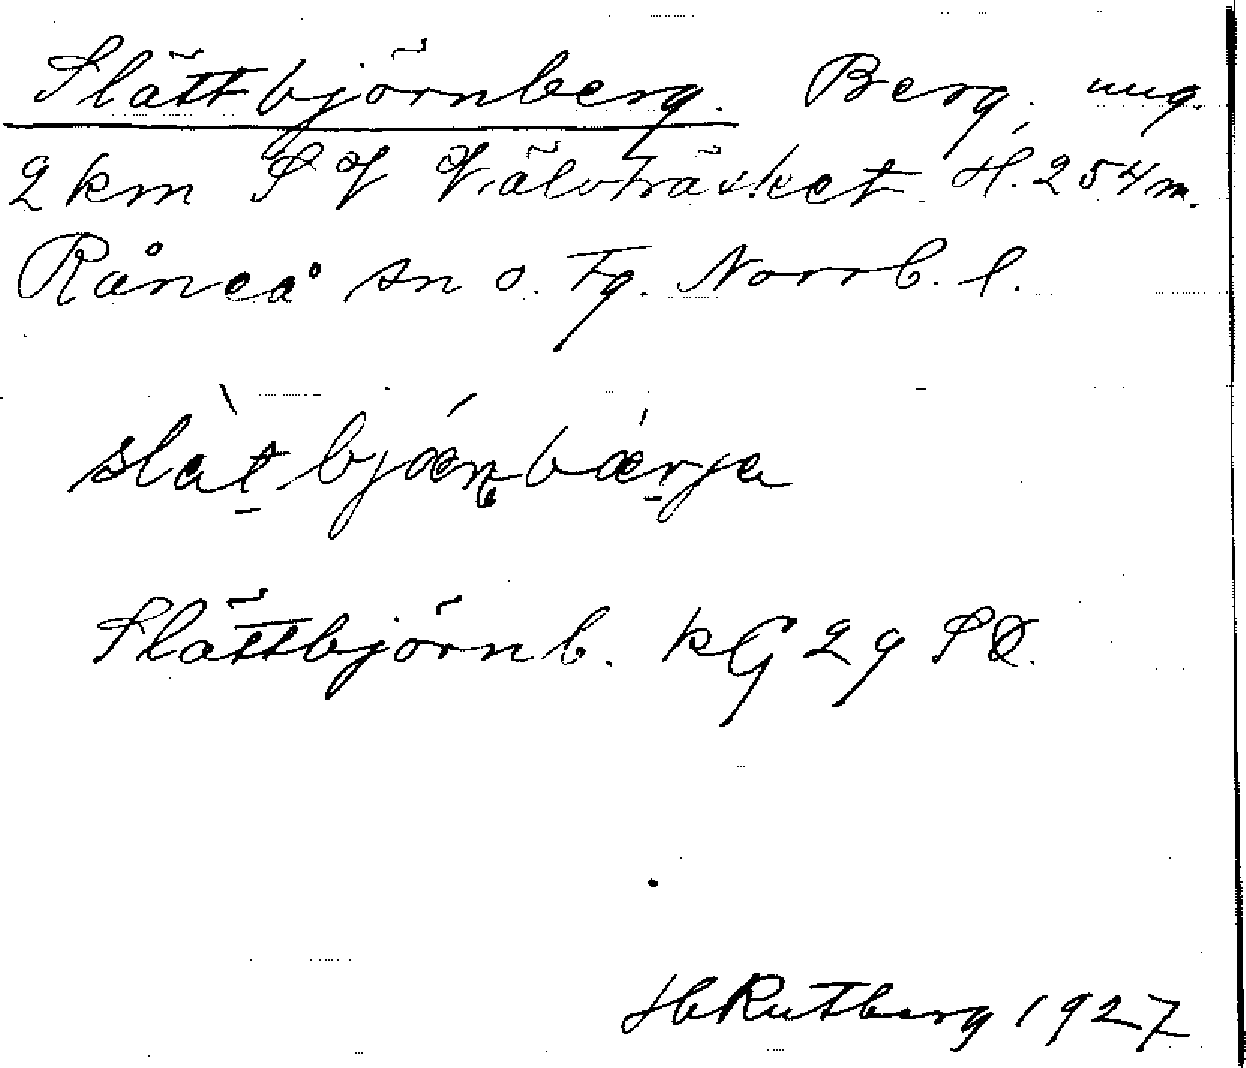 Slättbjörnberg. Berg, ung.
2 km SV Välvträsket H. 254 m.
Råneå sn o. Tg. Norrb. l.
slàt bjǽn bǽrja
Slättbjörnb. kG 29 SO.
H Rutberg 1927